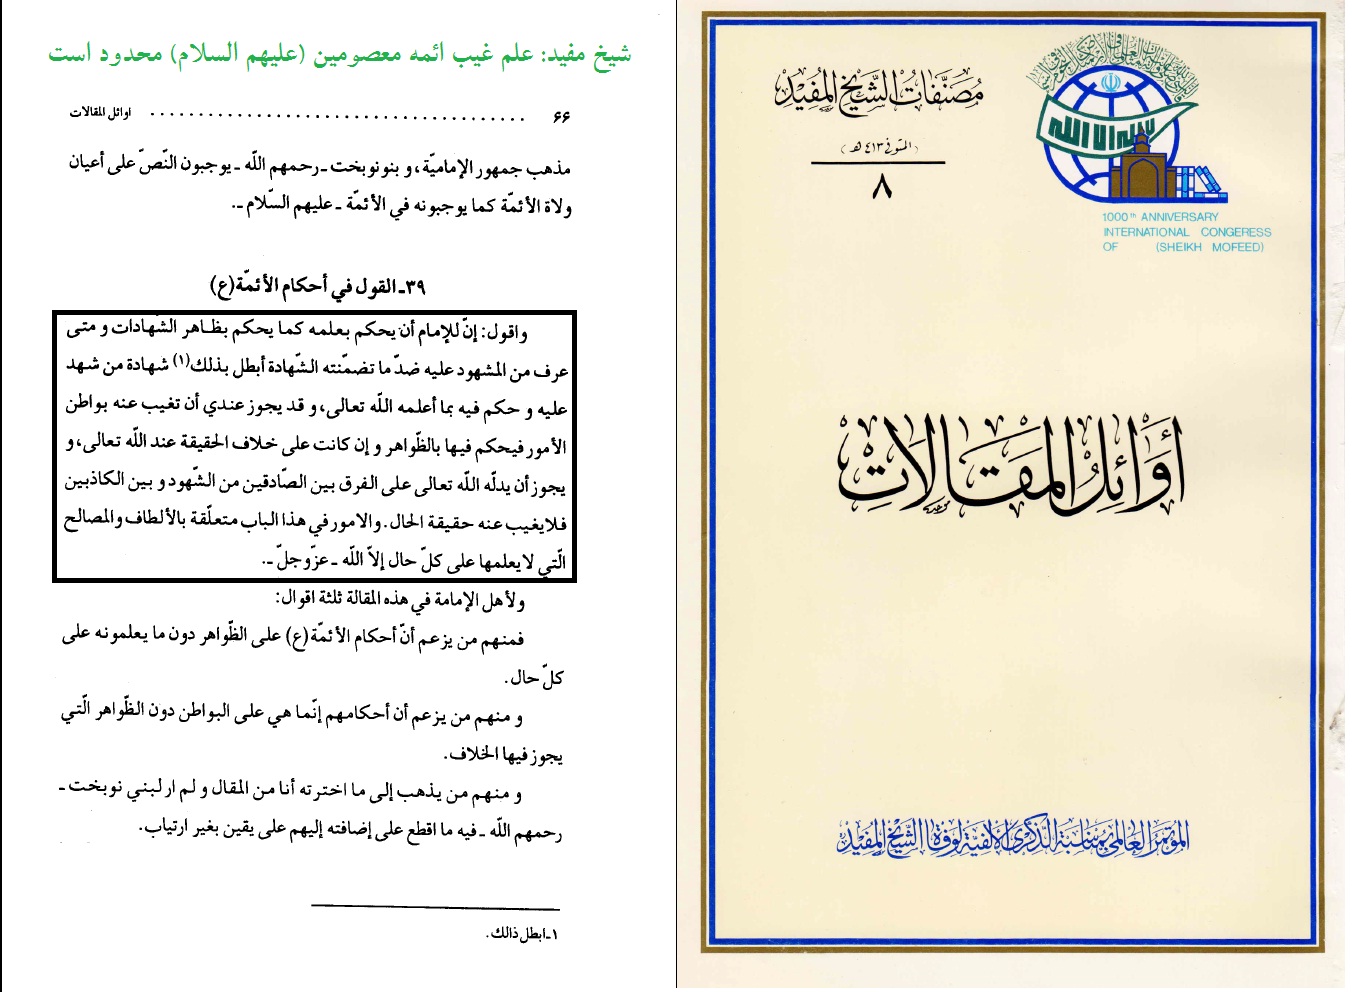 شیخ مفید: علم غیب ائمه معصومین (علیهم السلام) محدود است
۶۶ ....................................... اوائل المقالات
مذهب جمهور الإماميّة، و بنونوبخت ـ رحمهم اللّه ـ يوجبون النّصّ على أعيان
ولاة الأئمّة كما يوجبونه في الأئمّة ـ عليهم السّلام ـ.
٣٩ـ القول في أحكام الأئمّة (ع)
واقول: إنّ للإمام أن يحكم بعلمه كما يحكم بظاهر الشّهادات و متى
عرف من المشهود عليه ضدّ ما تضمّنته الشّهادة أبطل بذلك(١) شهادة من شهد
عليه و حكم فيه بما أعلمه اللّه تعالى، و قد يجوز عندي أن تغيب عنه بواطن
الأمور فيحكم فيها بالظّواهر و إن كانت على خلاف الحقيقة عند اللّه تعالى، و
يجوز أن يدلّه اللّه تعالى على الفرق بين الصّادقين من الشّهود و بين الكاذبين
فلا يغيب عنه حقيقة الحال. والامور في هذا الباب متعلّقة بالألطاف والمصالح
الّتي لا يعلمها على كلّ حال إلاّ اللّه ـ عزّ وجلّ ـ.
ولأهل الإمامة في هذه المقالة ثلثة اقوال:
فمنهم من يزعم أنّ أحكام الأئمّة (ع) على الظّواهر دون ما يعلمونه على
كلّ حال.
و منهم من يزعم أن أحكامهم إنّما هي على البواطن دون الظّواهر الّتي
يجوز فيها الخلاف.
و منهم من يذهب إلى ما اخترته أنا من المقال و لم ار لبني نوبخت ـ
رحمهم اللّه ـ فيه ما اقطع على إضافته إليهم على يقين بغير ارتياب.
١ـ ابطل ذالك.
مصنّفات الشّيخ المفيد
(المتوفى ٤١٣ هـ)
٨
لا إله إلا الله
1000th ANNIVERSARY
INTERNATIONAL CONGERESS
OF (SHEIKH MOFEED)
أوائل المقالات
المؤتمر العالمي بمناسبة الذّكرى الألفيّة لوفاة الشّيخ المفيد